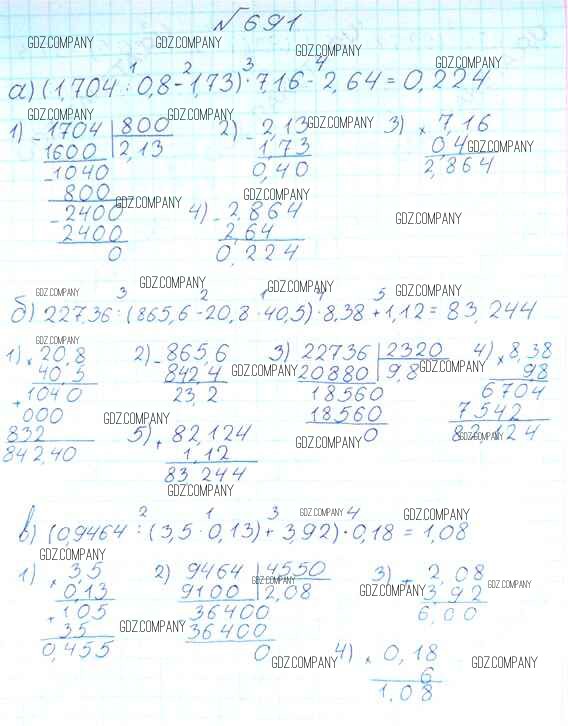 №691
GDZ.COMPANY GDZ.COMPANY GDZ.COMPANY GDZ.COMPANY
1 2 3 4
а) (1,704 : 0,8 - 1,73) · 7,16 - 2,64 = 0,224
GDZ.COMPANY GDZ.COMPANY
1) - 1704 | 800 2) - 2,13 GDZ.COMPANY 3) × 7,16
1600 2,13 1,73 0,4 GDZ.COMPANY
- 1040 0,40 2,864
800 GDZ.COMPANY GDZ.COMPANY
- 2400 4) - 2,864 GDZ.COMPANY
2400 2,64
0 0,224
GDZ.COMPANY GDZ.COMPANY GDZ.COMPANY GDZ.COMPANY
3 2 1 4 5
б) 227,36 : (865,6 - 20,8 · 40,5) · 8,38 + 1,12 = 83,244
GDZ.COMPANY
1) × 20,8 2) - 865,6 3) 22736 | 2320 4) × 8,38
40,5 842,4 GDZ.COMPANY 20880 9,8 GDZ.COMPANY 9,8
+ 1040 23,2 18560 6704
000 GDZ.COMPANY 18560 7542
832 5) + 82,124 GDZ.COMPANY 0 82,124 GDZ.COMPANY
842,40 1,12
83,244
GDZ.COMPANY
2 1 3 4
в) (0,9464 : (3,5 · 0,13) + 3,92) · 0,18 = 1,08
GDZ.COMPANY GDZ.COMPANY
GDZ.COMPANY
1) × 3,5 2) 9464 | 4550 3) + 2,08
0,13 9100 GDZ.COMPANY 2,08 GDZ.COMPANY 3,92 GDZ.COMPANY
+ 105 36400 6,00
35 GDZ.COMPANY 36400
0,455 0 GDZ.COMPANY 4) × 0,18 GDZ.COMPANY
6
1,08